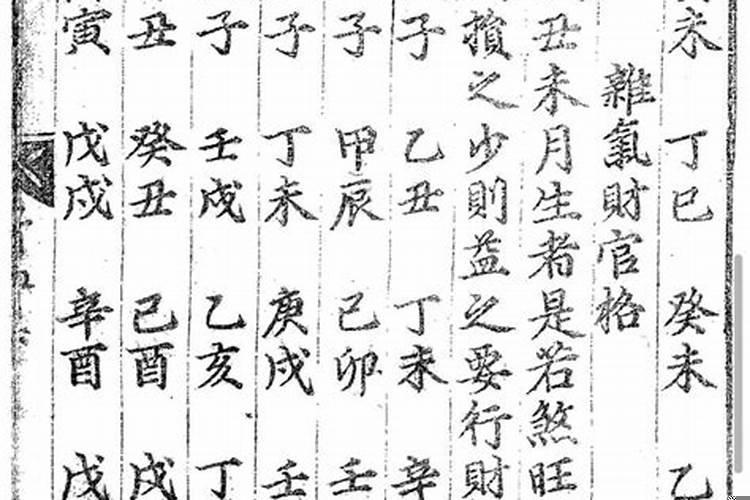 未 丁巳 癸未 乙
雜氣財官格
丑未月生者是若煞旺
損之少則益之要行財
子 乙丑 丁未 辛
子 甲辰 己卯 壬
子 丁未 庚戌 壬
子 壬戌 乙亥 丁
丑 癸丑 己酉 戊
寅 戊戌 辛酉 戊